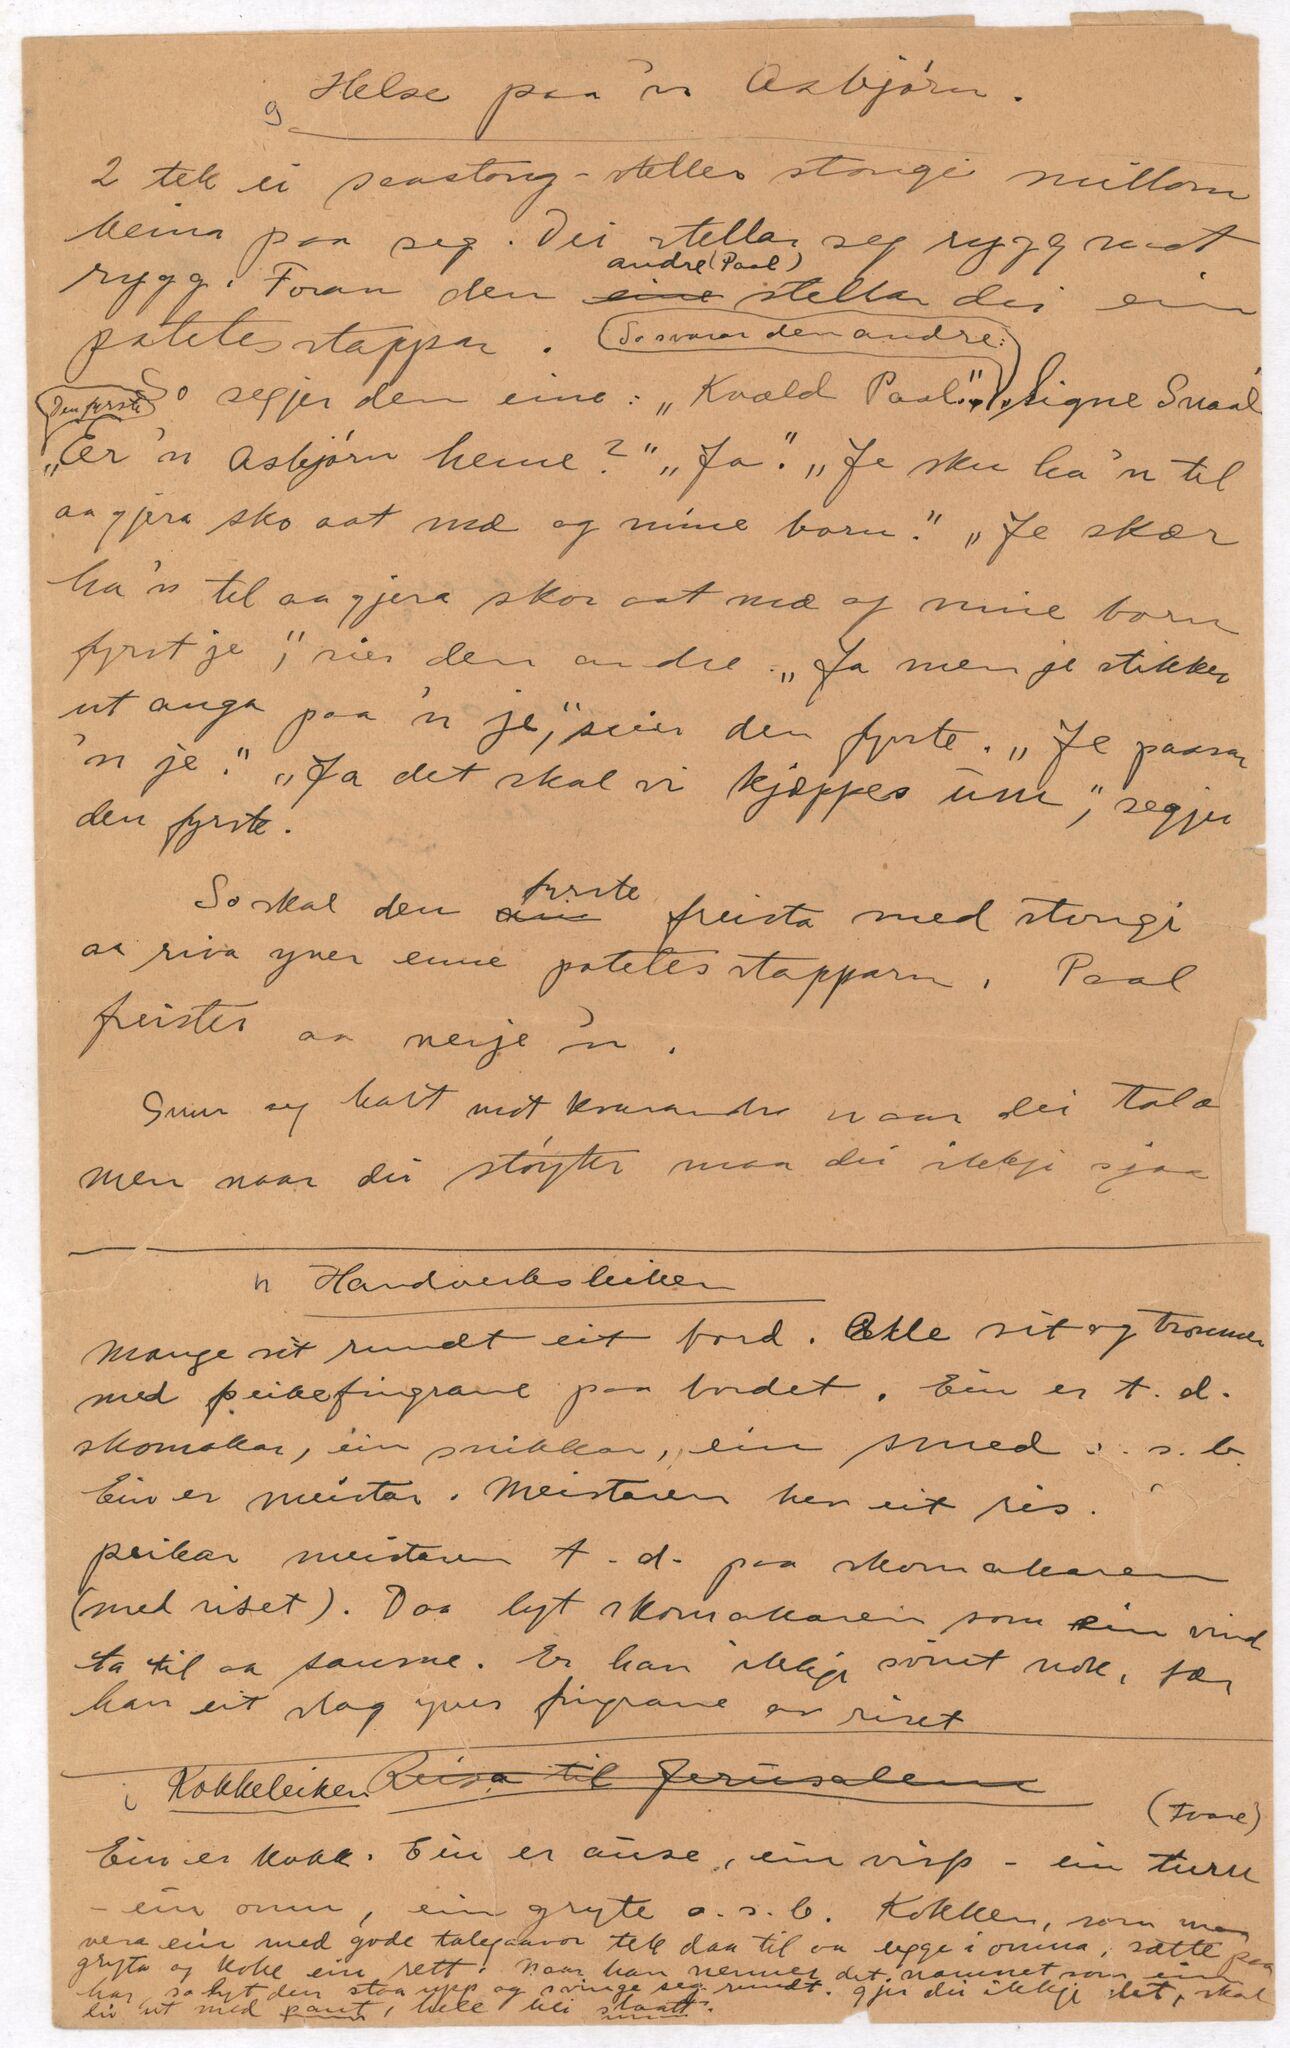 g Helse paa 'n Asbjørn.
2 tek ei saastong - steller stongi millom
beina paa seg. Dei stellar seg rygg mot
rygg. Foran den ~~eine~~ andre (Paal) stellar dei ein
potetesstappar. (So svarar den andre:
So segjer den eine: „Kvæld Paal". „Signe Snaal"
(Den fyrste) „Er 'n Asbjørn heme?" „Ja". „Je sku ha 'n til
aa gjera sko aat mæ og mine born." „Je skær
ha 'n til aa gjera skor aat mæ og mine born
fyrst je", sier den andre. „Ja men je stikker
ut auga paa 'n je", seier den fyrste. „Je passar
'n je." „Ja det skal vi kjæppes um", segjer
den fyrste.
So skal den ~~eine~~ fyrste freista med stongi
aa riva yver enne potetesstapparn. Paal
freister aa verje 'n.
Snur seg halt mot kvarandre naar dei tala
men naar dei støyter maa dei ikkje sjaa
h Handverksleiken
Mange sit rundt eit bord. Alle sit og trommer
med peikefingrane paa bordet. Ein er t. d.
skomakar, ein snikkar, ein smed o. s. b.
Ein er meistar. Meistaren hev eit ris.
peikar meistaren t. d. paa skomakaren
(med riset). Daa lyt skomakaren som ein vind
ta til aa saume. Er han ikkje snint nok, fær
han eit slag yver fingrane av riset
i Kokkeleiken ~~Reisa til Jerusalem~~
(tvare)
Ein er kokk. Ein er ause, ein visp - ein turu
- ein omn, ein gryte o. s. b. Kokken, som maa
vera ein med gode talegaavor tek daa til aa legge i omnn, sætte paa
gryta og koke ein rett. Naar han nemner det namnet som ein
har, so lyt den staa upp og svinge seg rundt. Gjer dei ikkje det, skal
ut med pant,